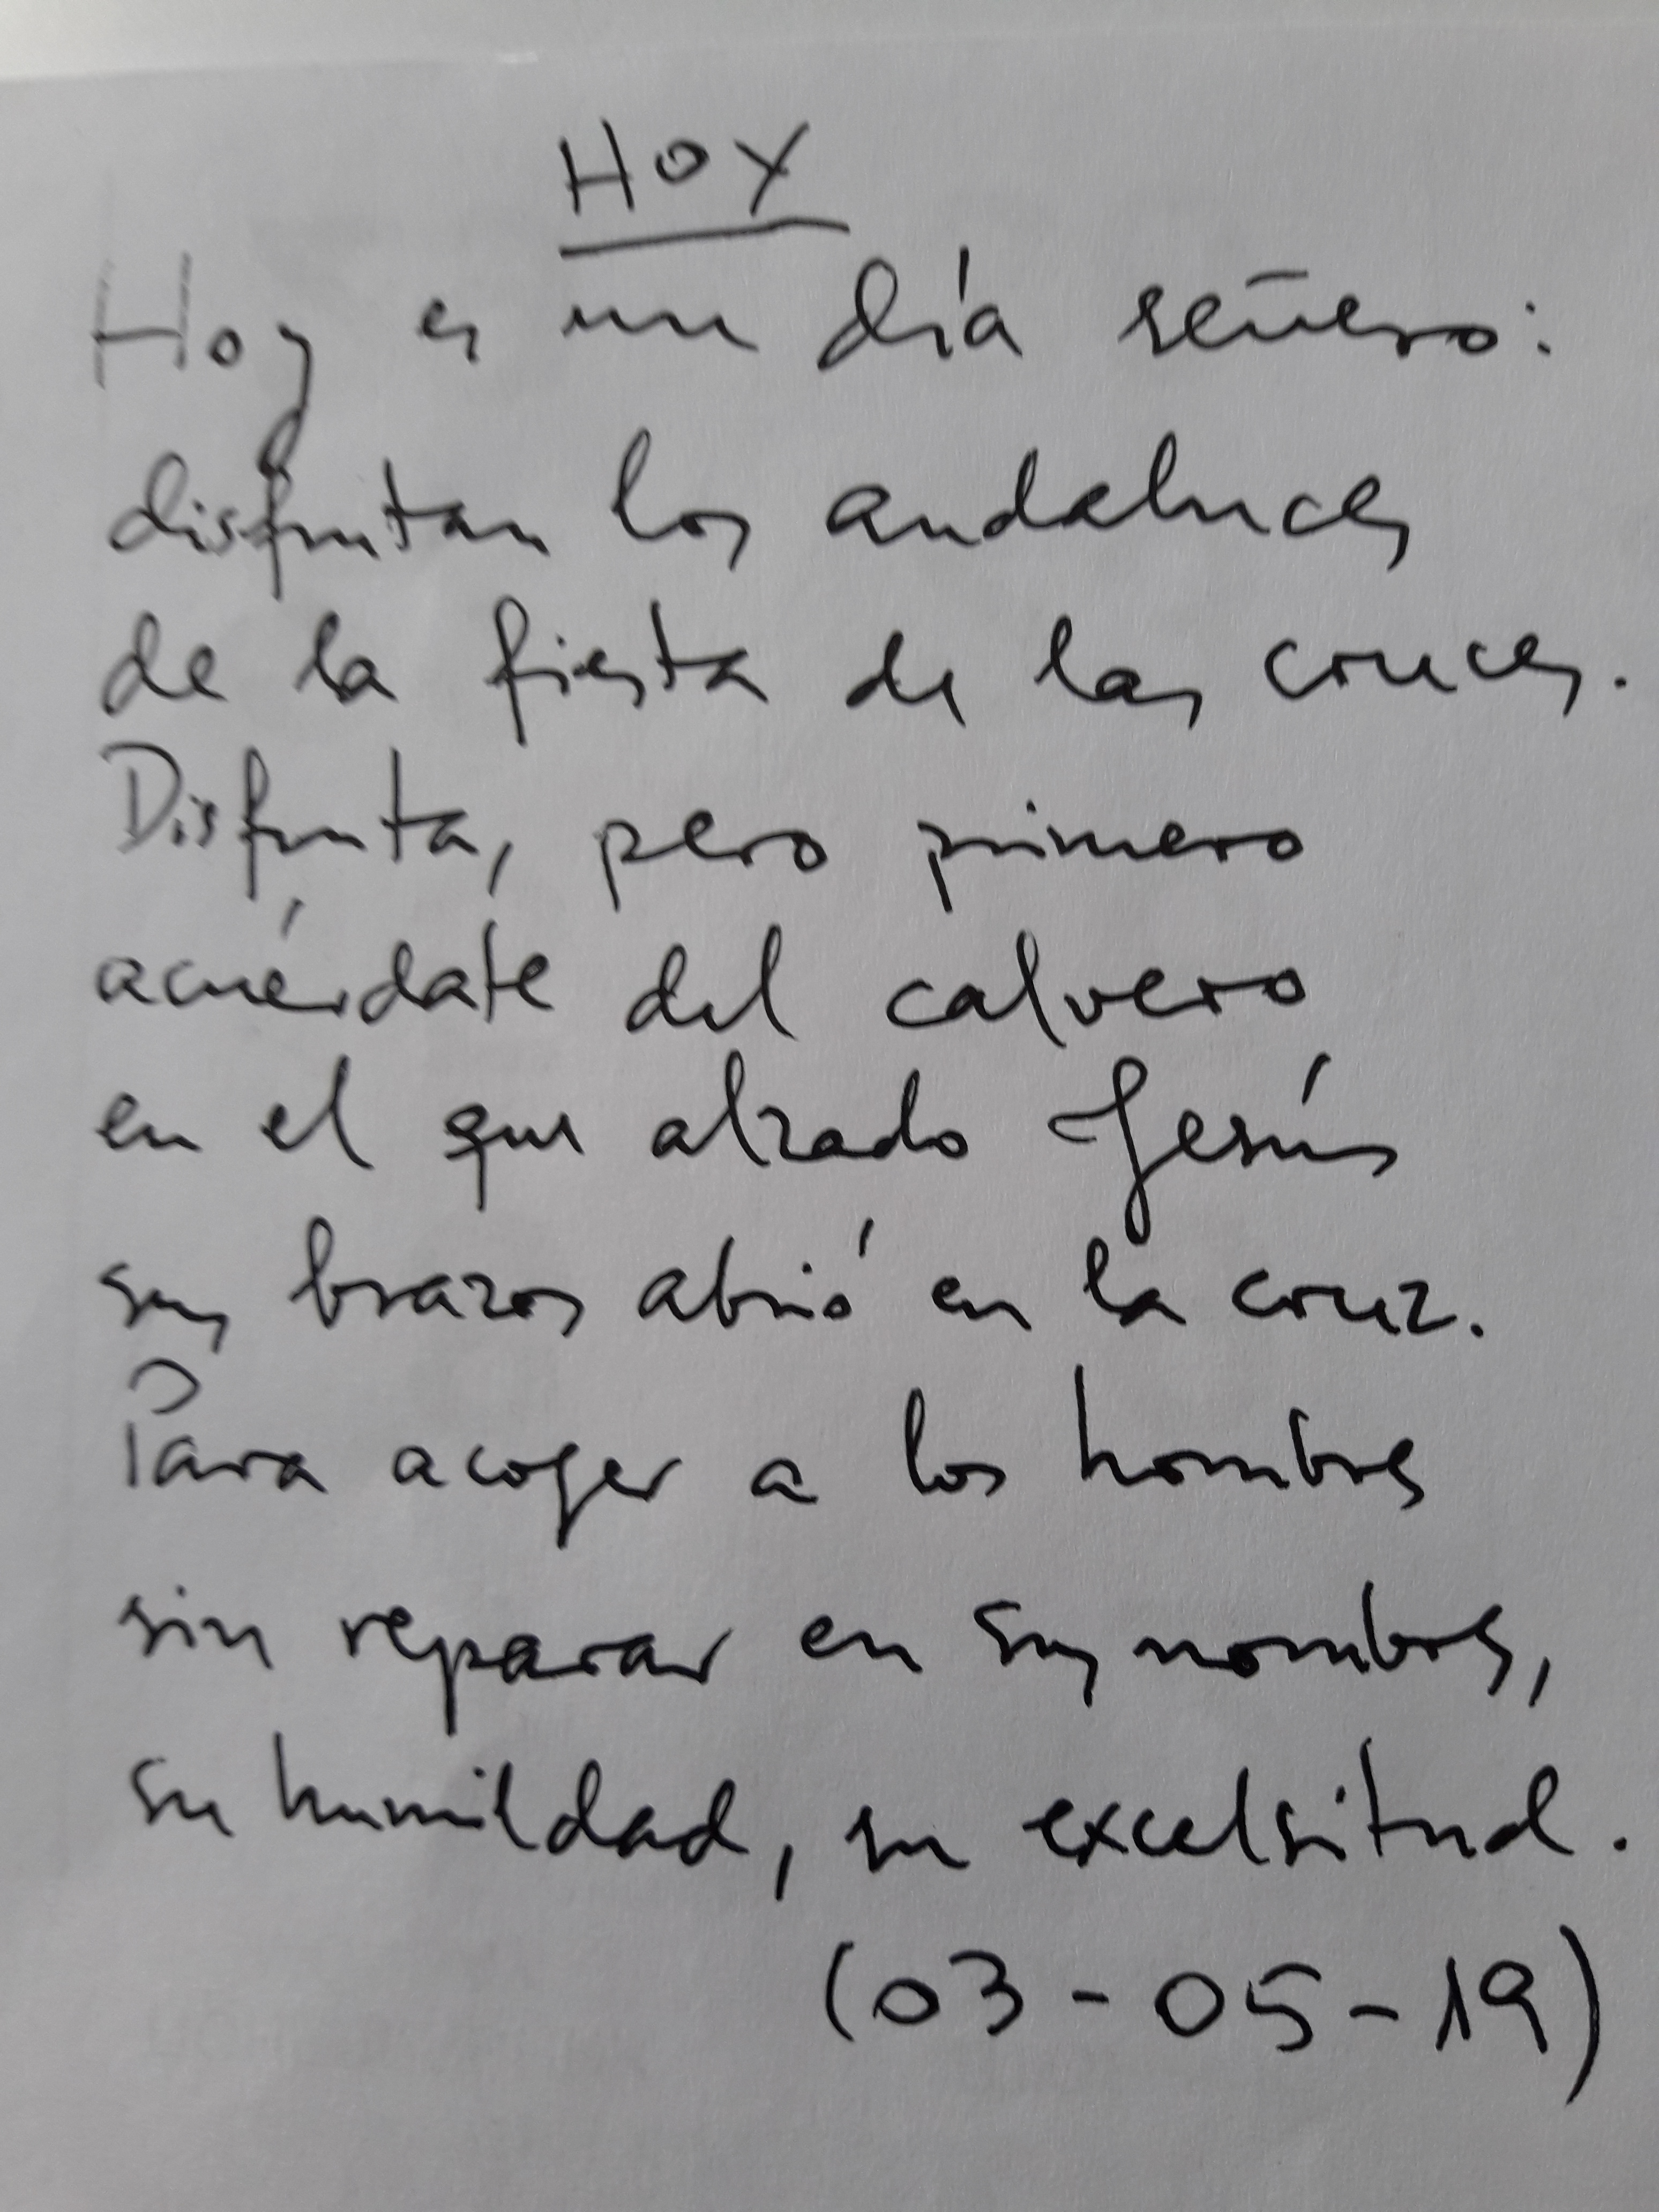 HOY
Hoy es un día señero:
disfrutan los andaluces
de la fiesta de las cruces.
Disfruta, pero primero
acuérdate del calvero
en el que alzado Jesús
sus brazos abrió en la cruz.
Para acoger a los hombres
sin reparar en sus nombres,
su humildad, su excelsitud.
(03-05-19)